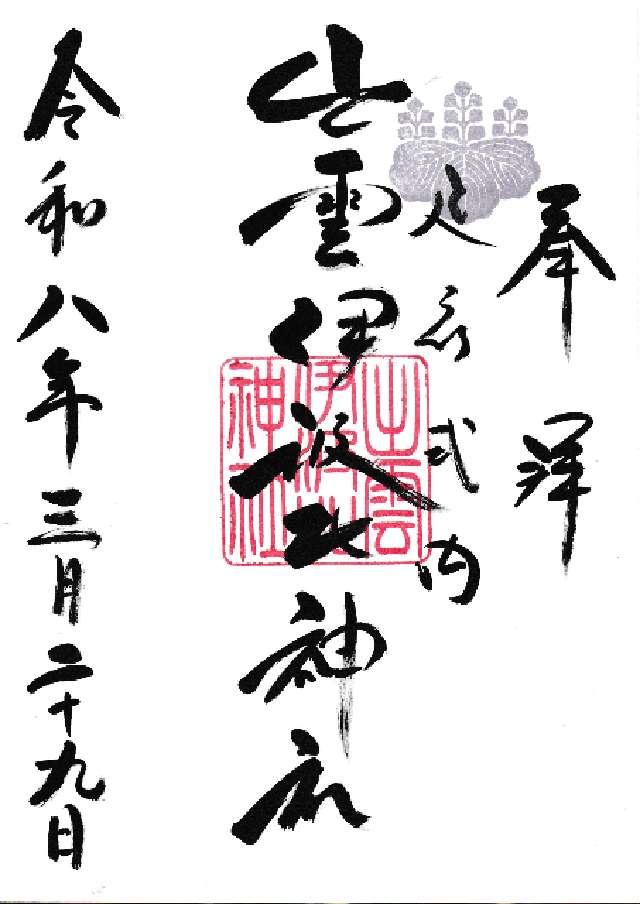 奉拝
延喜式内
出雲伊波比神社
出雲
伊波比
神社
令和八年三月二十九日